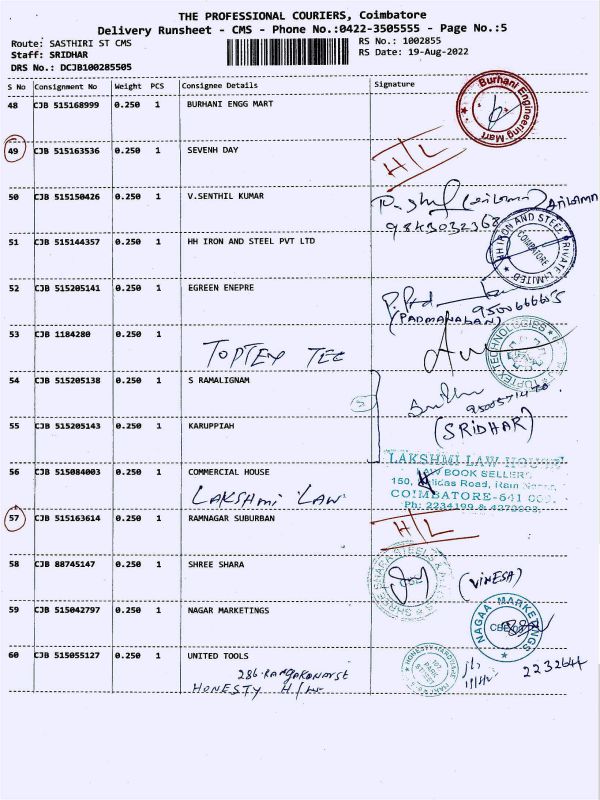 THE PROFESSIONAL COURIERS, Coimbatore
Delivery Runsheet - CMS - Phone No.:0422-3505555 - Page No.:5
Route: SASTHIRI ST CMS
RS No.: 1002855
Staff: SRIDHAR
RS Date: 19-Aug-2022
DRS No.: DCJB100285505
S No Consignment No Weight PCS Consignee Details Signature
48 CJB 515168999 0.250 1 BURHANI ENGG MART
Burhani Engineering Mart
49 CJB 515163536 0.250 1 SEVENH DAY
H/L
50 CJB 515150426 0.250 1 V.SENTHIL KUMAR
9843032368
51 CJB 515144357 0.250 1 HH IRON AND STEEL PVT LTD
HH IRON AND STEEL PRIVATE LIMITED
COIMBATORE
52 CJB 515205141 0.250 1 EGREEN ENEPRE
(PADMANABAN)
53 CJB 1184280 0.250 1
TOPTEX TEC
TOPTEX TECHNOLOGIES
54 CJB 515205138 0.250 1 S RAMALIGNAM
55 CJB 515205143 0.250 1 KARUPPIAH
(SRIDHAR)
56 CJB 515084003 0.250 1 COMMERCIAL HOUSE
LAKSHMI LAW
LAKSHMI LAW HOUSE
LAW BOOK SELLERS
COIMBATORE-641
57 CJB 515163614 0.250 1 RAMNAGAR SUBURBAN
H/L
58 CJB 88745147 0.250 1 SHREE SHARA
(VINESA)
59 CJB 515042797 0.250 1 NAGAR MARKETINGS
NAGAA MARKETINGS
60 CJB 515055127 0.250 1 UNITED TOOLS
2232644
HONESTY H/W